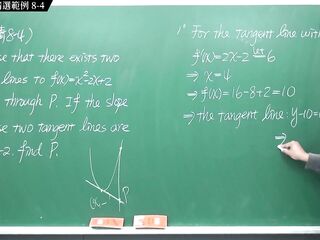 精選範例 8-4
8-4)
se that there exists two
lines to f(x)=x²-2x+2
through P. If the slope
se two tangent lines are
-2. find P.
P
1° For the tangent line with
f'(x)=2x-2 let = 6
⇒ x=4
⇒ f(x)=16-8+2=10
⇒ the tangent line: y-10=
⇒